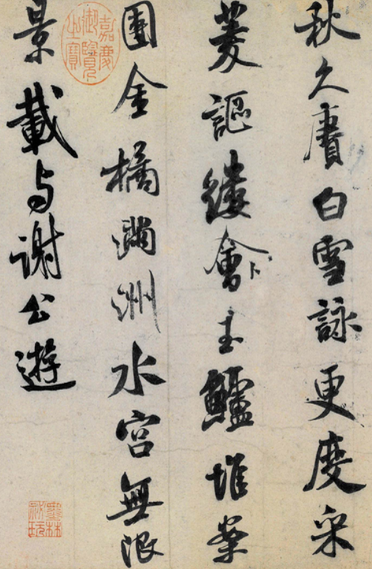 秋久賡白雪詠更度采
菱謳縷會卜玉鱸堆案
團金橘滿洲水宫無限
景載与謝公遊
嘉慶御覽之寶